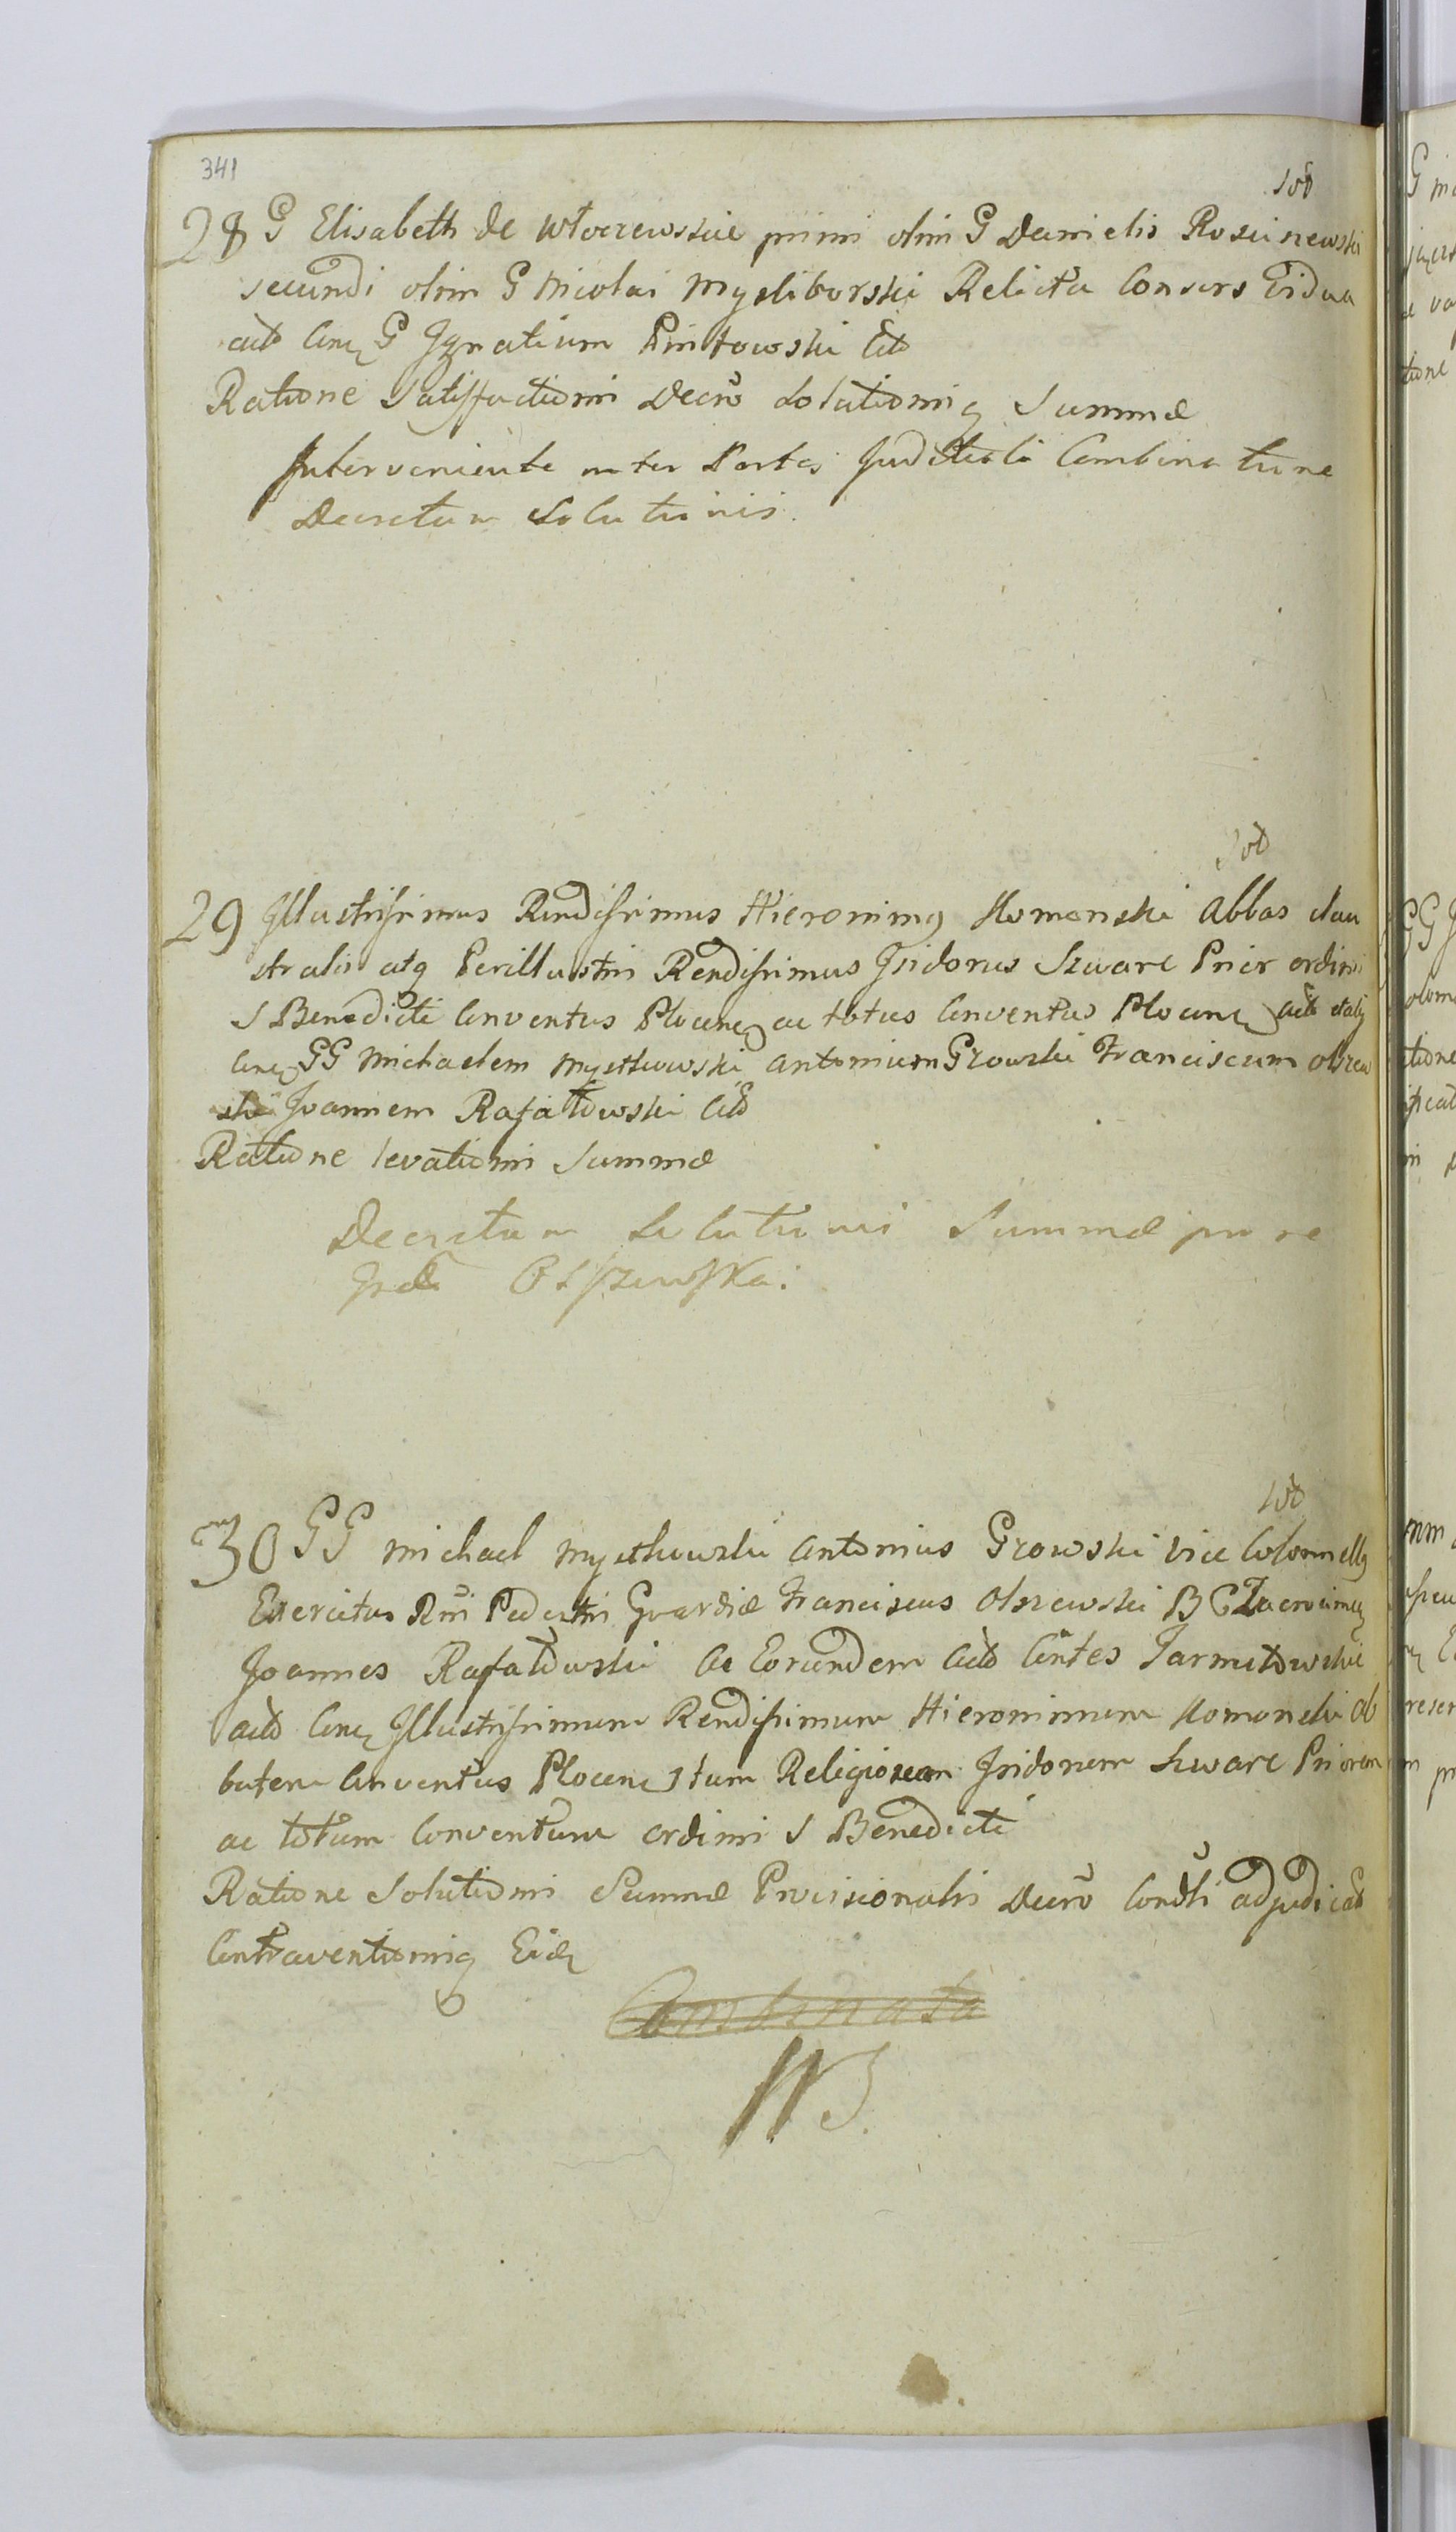 341
Sod
28 G Elisabeth de Włoczewskie primi olim G Danielis Rosciszewski
secundi olim G Nicolai Mysliborski Relicta Consors Vidua
actô Conq G Ignatium Pintowski Citô
Ratione Satisfactionis Decrō Solutionisq Summæ
Interveniente inter Partes Juditiali Combinatione
Decretum Solutionis.
Sod
29 Illustrissimus Rendissimus Hieronimq Komonski Abbas clau
stralis atq Perillustris Rendissimus Isidorus Szwarc Prior ordinis
S Benedicti Conventus Plocensq ac totus Conventus Plocensq actô
Conq GG Michaelem Mystkowski Antonium Grzowski Franciscum Olszew
ski Joannem Rafałowski Citô
Ratione levationis Summæ
Decretum Solutionis Summæ pro re
30 GG Michael Mystkowski Antonius Gzowski vice Colonnellq
Exercitus Rñi Pedestris Gvardiæ Franciscus Olszewski B C
Joannes Rafałowski ac Eorundem actô Conq Illustrissimum Rendissimum Hieronimum Komonski Ab
batem Conventus Plocens tum Religiosum Isidorum Szwarc Priorem
ac totum Conventum ordinis S Benedicti
Ratione Solutionis Summæ Provisionalis Decrō Condti adjudicat
Contraventionisq Eidq
Combinata